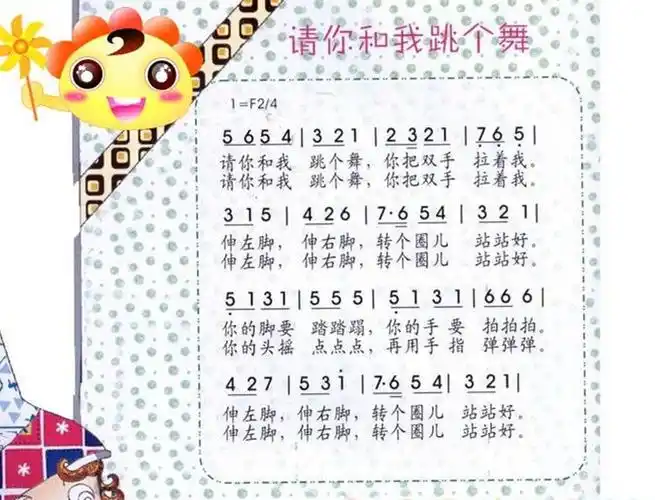 请你和我跳个舞
1=F2/4
5 6 5 4 | 3 2 1 | 2 3 2 1 | 7 6 5 |
请你和我 跳个舞，你把双手 拉着我。
请你和我 跳个舞，你把双手 拉着我。
3 1 5 | 4 2 6 | 7·6 5 4 | 3 2 1 |
伸左脚， 伸右脚，转个圈儿 站站好。
伸左脚， 伸右脚，转个圈儿 站站好。
5 1 3 1 | 5 5 5 | 5 1 3 1 | 6 6 6 |
你的脚要 踏踏蹋，你的手 要 拍拍拍。
你的头摇 点点点，再用手 指 弹弹弹。
4 2 7 | 5 3 i | 7·6 5 4 | 3 2 1 |
伸左脚，伸右脚，转个圈儿 站站好。
伸左脚，伸右脚，转个圈儿 站站好。